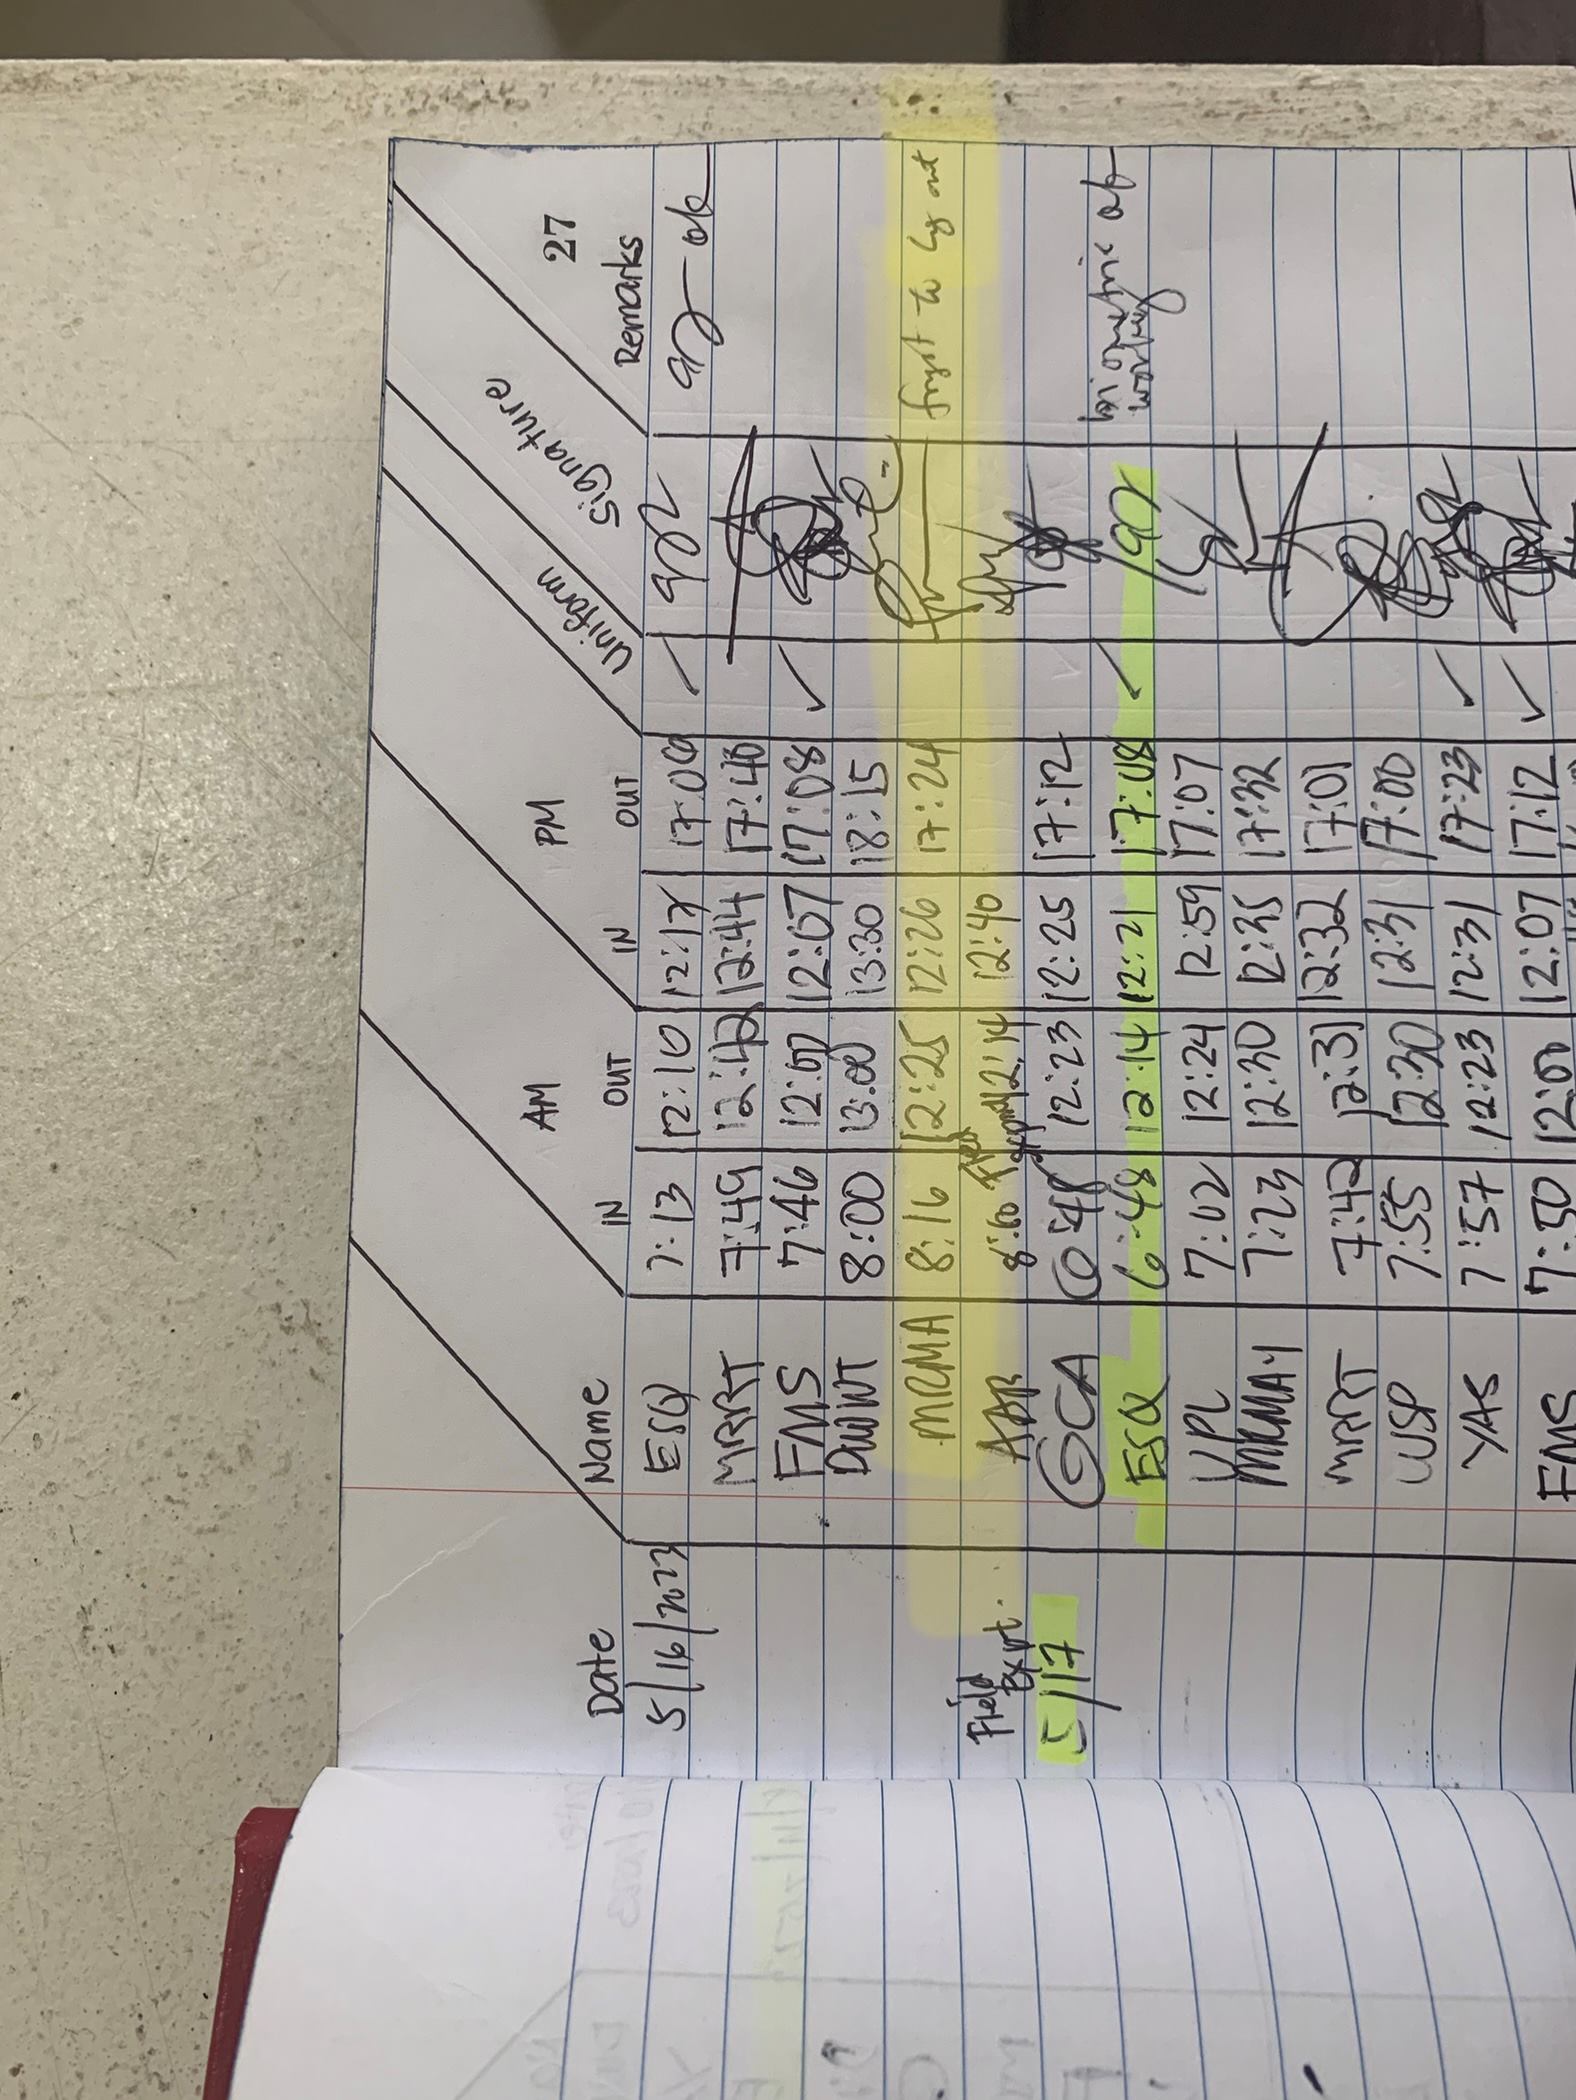 27
Date Name AM PM Uniform Signature Remarks
IN OUT IN OUT
5/16/2023 ESQ 7:13 12:10 12:17 17:09 ok
MRRT 7:49 12:42 12:44 17:40
FMS 7:46 12:00 12:07 17:08 ✓
8:00 13:00 13:30 18:15
MRMA 8:16 12:25 12:26 17:24 forgot to log out
Field ADR 8:00 12:14 12:40
5/17 GCA 6:48 12:23 12:25 17:12 ✓
ESQ 6:48 12:14 12:21 17:08 biometric not working
VPL 7:02 12:24 12:59 17:07
7:23 12:30 12:35 17:32
MRRT 7:42 12:31 12:32 17:01
WSP 7:55 12:30 12:31 17:00
YAS 7:57 12:23 12:31 17:23 ✓
FMS 7:50 12:00 12:07 17:12 ✓